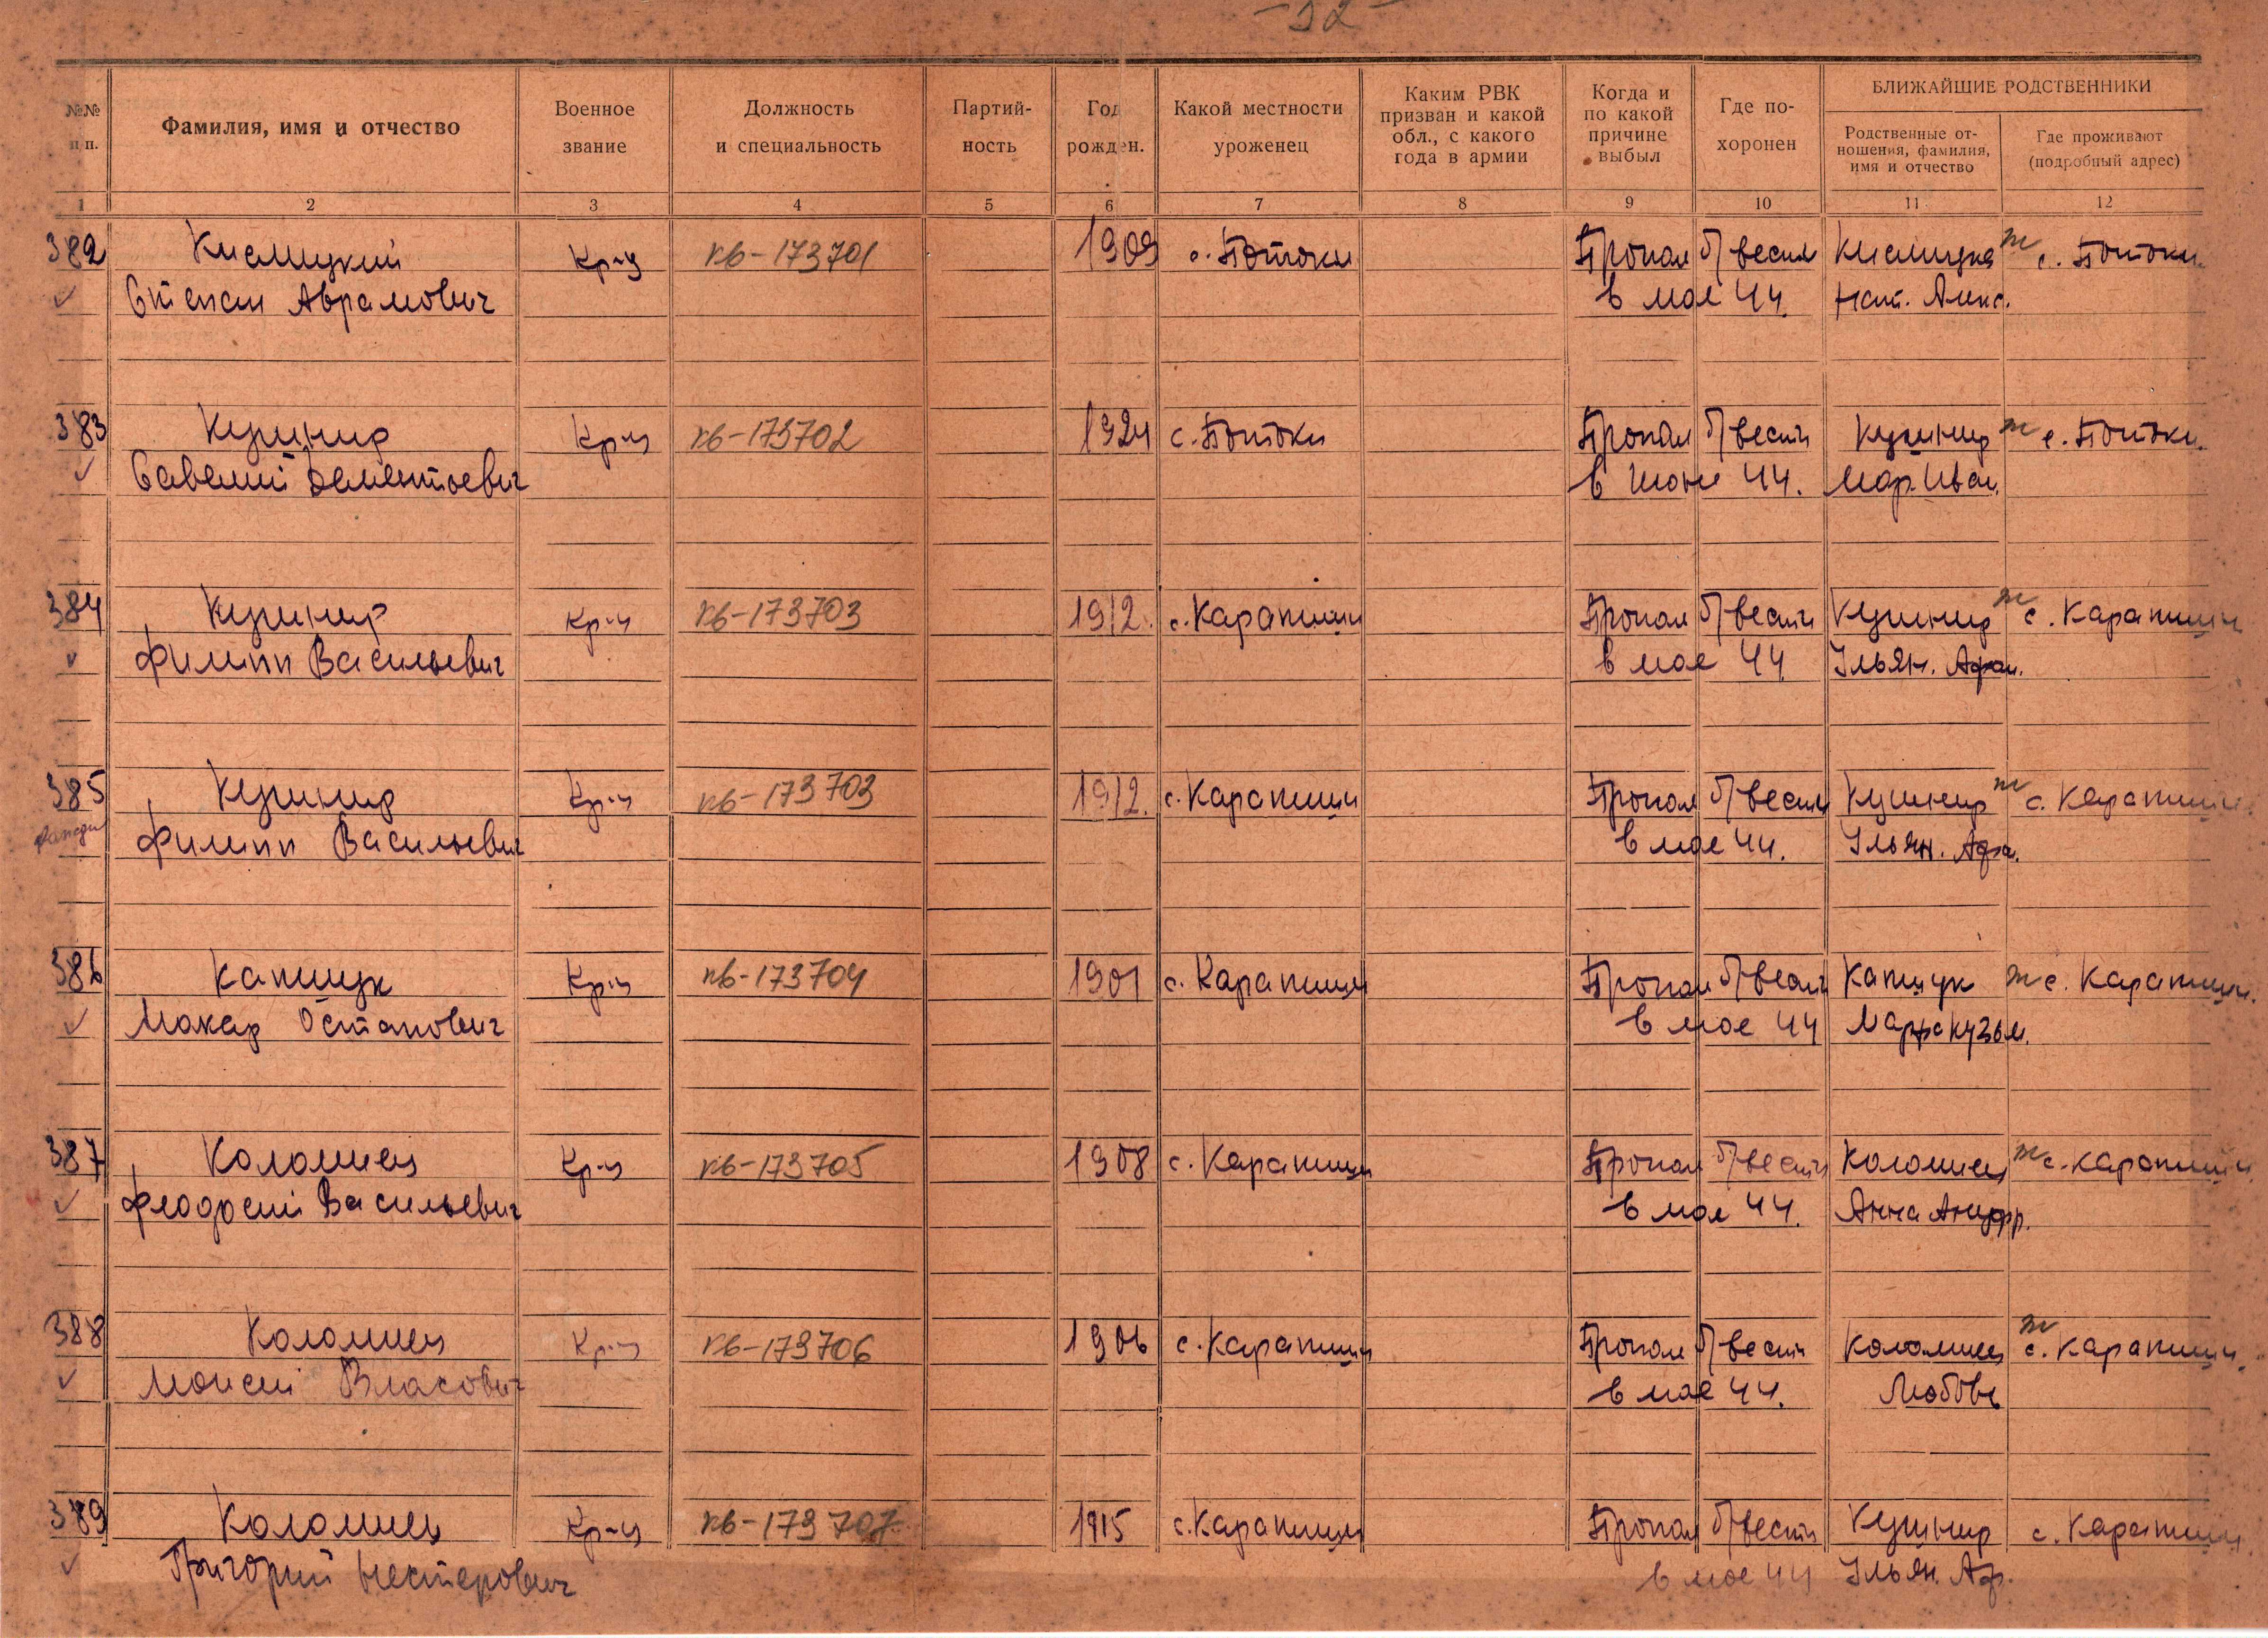 - 32 -
№№ п п.
Фамилия, имя и отчество
Военное звание
Должность и специальность
Партий- ность
Год рожден.
Какой местности уроженец
Каким РВК призван и какой обл., с какого года в армии
Когда и по какой причине выбыл
Где по- хоронен
БЛИЖАЙШИЕ РОДСТВЕННИКИ
Родственные от- ношения, фамилия, имя и отчество
Где проживают (подробный адрес)
1 2 3 4 5 6 7 8 9 10 11 12
382 Кислицкий Кр-ц кв-173701 1909 с. Потоки Пропал б/вести Кислицка ж с. Потоки
Степан Аврамович в мае 44. Нат. Алекс.
383 Кушнир Кр-ц кв-173702 1924 с. Потоки Пропал б/вести Кушнир ж с. Потоки.
Савелий Дементьевич в июне 44. Мар. Иван.
384 Кушнир Кр-ц кв-173703 1912. с. Карапиши Пропал б/вести Кушнир ж с. Карапиши
Филипп Васильевич в мае 44 Ульян. Афан.
385 Кушнир Кр-ц кв-173703 1912. с. Карапиши Пропал б/вести Кушнир ж с. Карапиши
Филипп Васильевич в мае 44. Ульян. Афа.
386 Капщук Кр-ц кв-173704 1901 с. Карапиши Пропал б/вести Капщук ж с. Карапиши.
Макар Остапович в мае 44 Марфа Кузьм.
387 Коломиец Кр-ц кв-173705 1908 с. Карапиши Пропал б/вести Коломиец ж с. Карапиши
Феодосий Васильевич в мае 44. Анна Анифр.
388 Коломиец Кр-ц кв-173706 1906 с. Карапиши Пропал б/вести Коломиец ж с. Карапиши.
Моисей Власович в мае 44. Любовь
389 Коломиец Кр-ц кв-173707 1915 с. Карапиши Пропал б/вести Кушнир с. Карапиши
Григорий Нестерович в мае 44 Ульян. Аф.